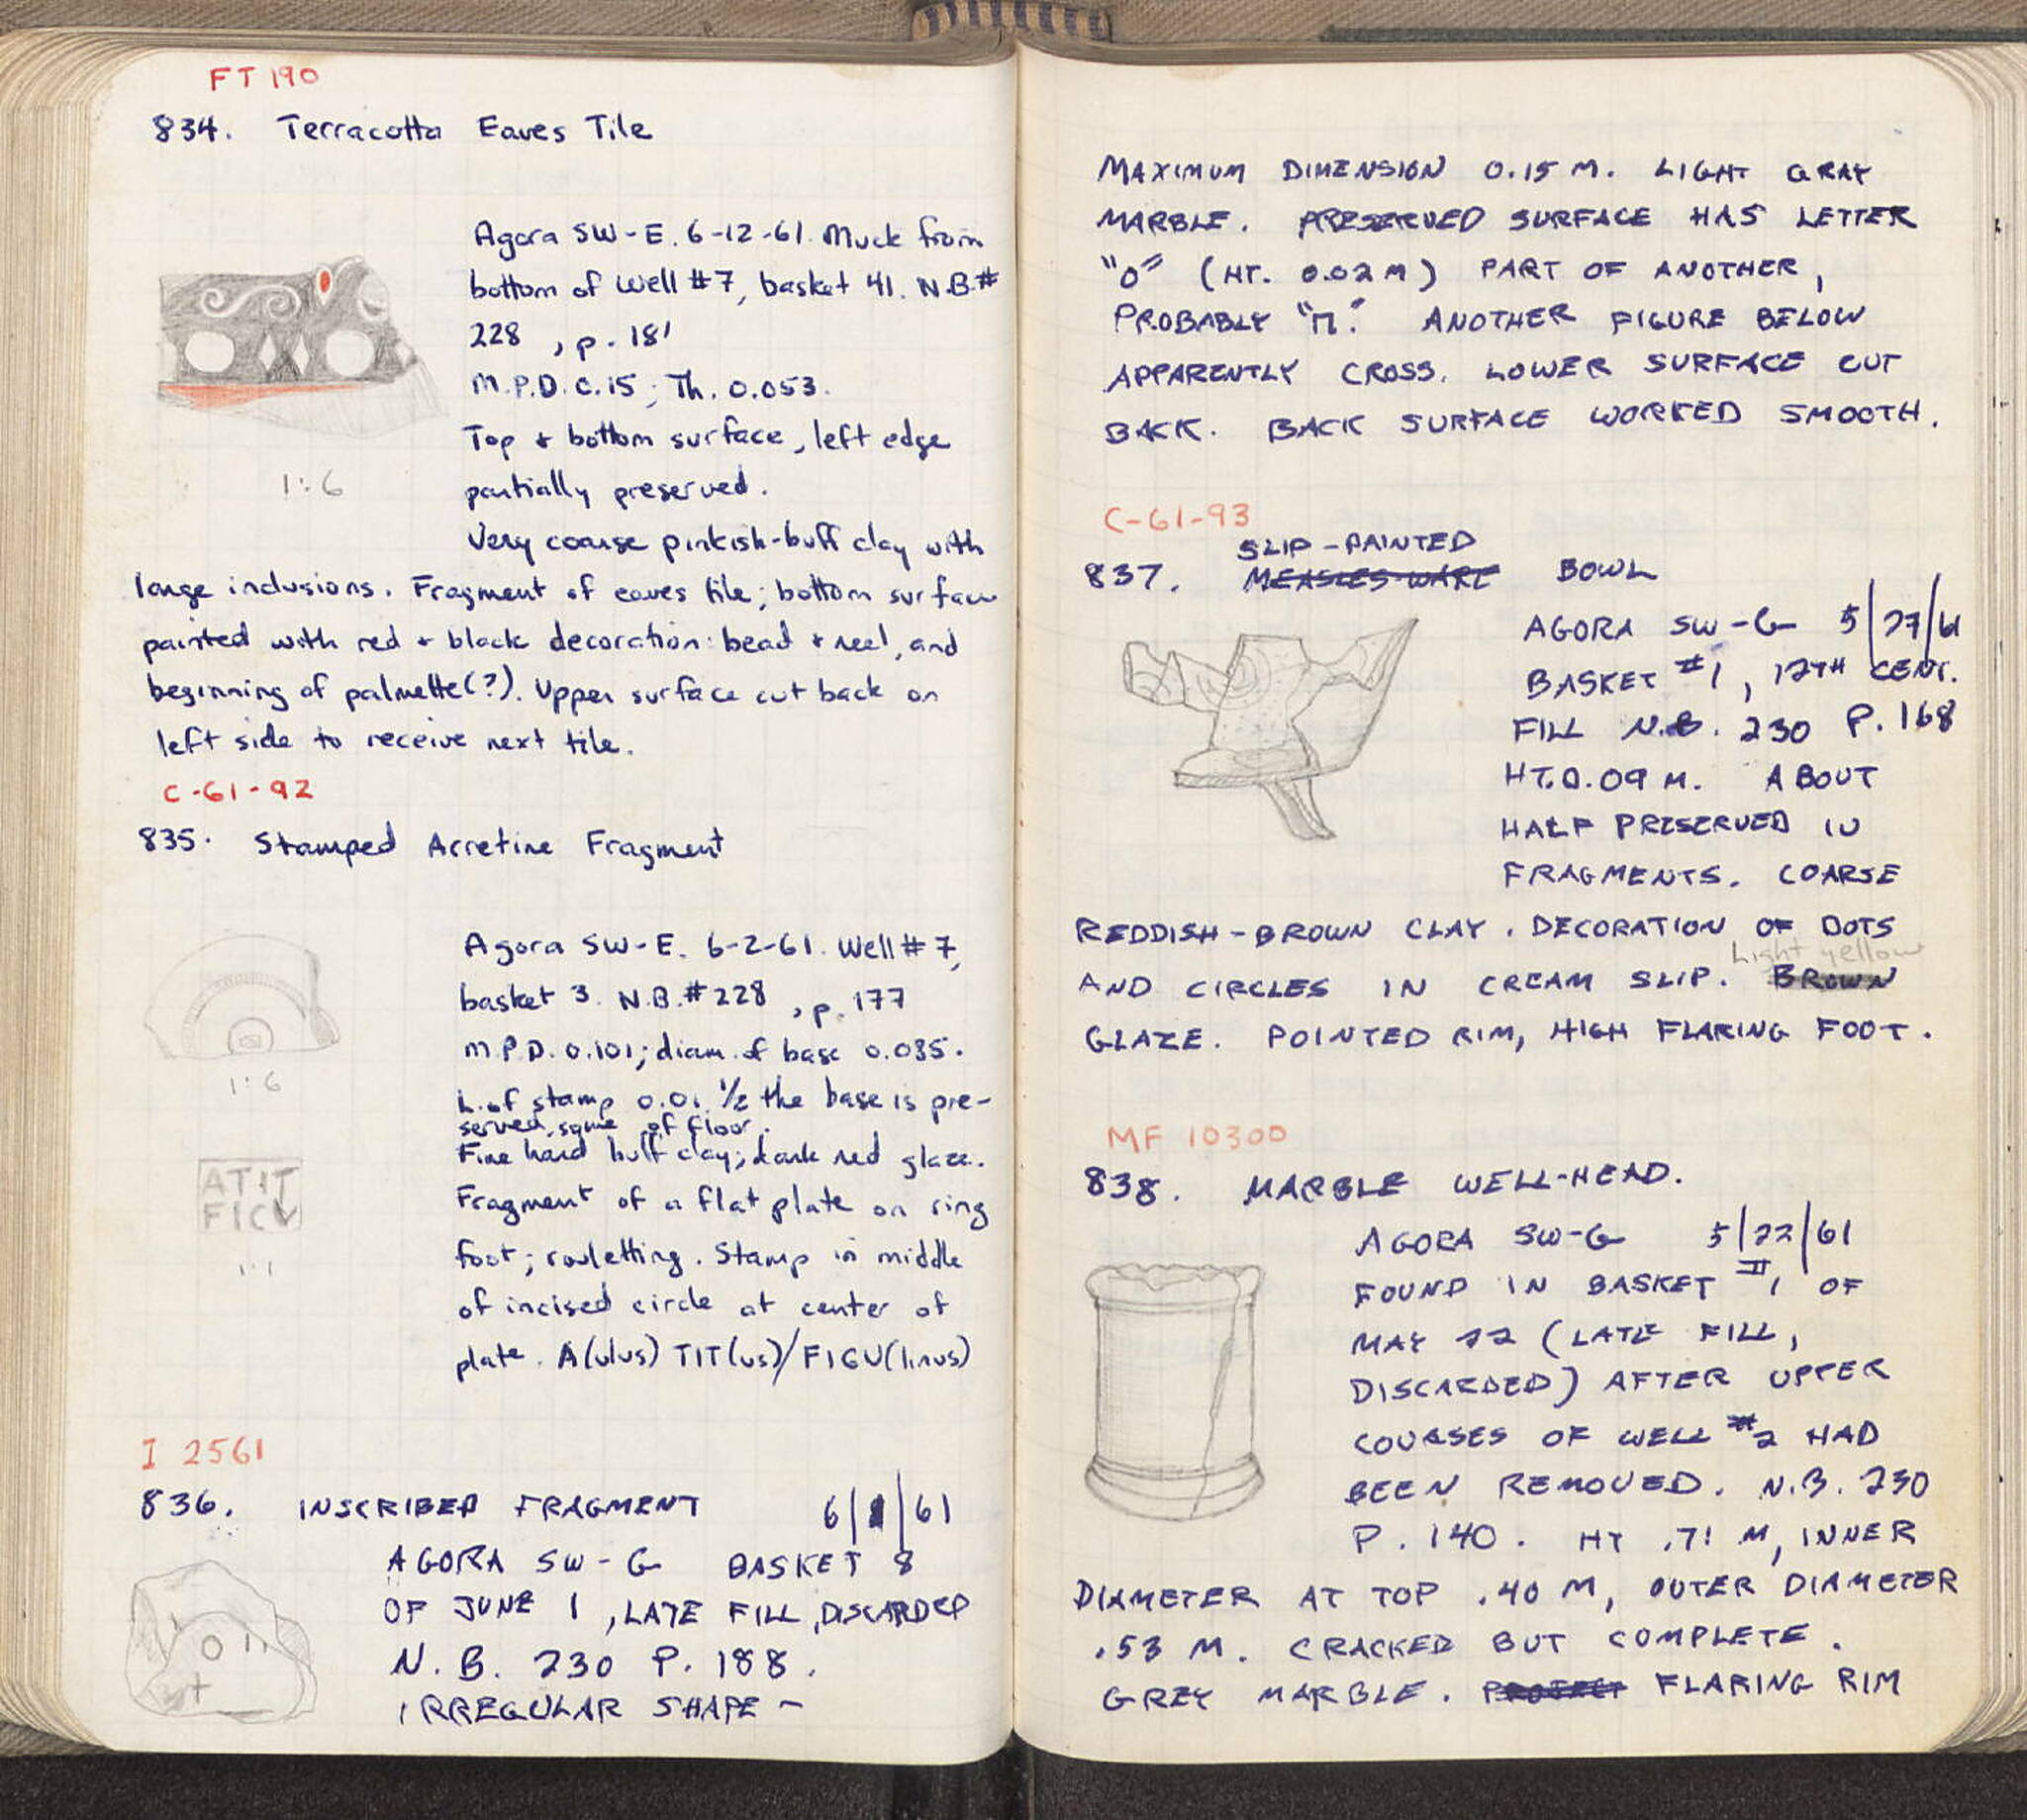 FT 190
834. Terracotta Eaves Tile
Agora SW-E. 6-12-61. Muck from
bottom of Well #7, basket 41. N.B.#
228 , p. 181
M.P.D. C.15; Th. 0.053.
Top + bottom surface, left edge
partially preserved.
1:6
Very coarse pinkish-buff clay with
large inclusions. Fragment of eaves tile; bottom surface
painted with red + black decoration: bead + reel, and
beginning of palmette(?). Upper surface cut back on
left side to receive next tile.
C-61-92
835. Stamped Arretine Fragment
Agora SW-E. 6-2-61. Well #7,
basket 3. N.B.#228 , p. 177
M.P.D. 0.101; diam. of base 0.085.
1:6
L. of stamp 0.01. 1/2 the base is pre-
served, some of floor.
Fine hard buff clay; dark red glaze.
Fragment of a flat plate on ring
foot; rouletting. Stamp in middle
of incised circle at center of
plate. A(ulus) TIT(us)/FIGU(linus)
ATIT
FICV
1:1
I 2561
836. INSCRIBED FRAGMENT 6/1/61
AGORA SW-G BASKET 8
OF JUNE 1, LATE FILL, DISCARDED
N.B. 230 P. 188.
IRREGULAR SHAPE -
O
+
MAXIMUM DIMENSION 0.15 M. LIGHT GRAY
MARBLE. PRESERVED SURFACE HAS LETTER
"O" (HT. 0.02 M) PART OF ANOTHER,
PROBABLY "Π". ANOTHER FIGURE BELOW
APPARENTLY CROSS. LOWER SURFACE CUT
BACK. BACK SURFACE WORKED SMOOTH.
C-61-93
SLIP-PAINTED
837. MEASLES WARE BOWL
AGORA SW-G 5/27/61
BASKET #1, 12TH CENT.
FILL N.B. 230 P. 168
HT. 0.09 M. ABOUT
HALF PRESERVED IN
FRAGMENTS. COARSE
REDDISH-BROWN CLAY. DECORATION OF DOTS
Light yellow
AND CIRCLES IN CREAM SLIP. BROWN
GLAZE. POINTED RIM, HIGH FLARING FOOT.
MF 10300
838. MARBLE WELL-HEAD.
AGORA SW-G 5/22/61
FOUND IN BASKET #1 OF
MAY 22 (LATE FILL,
DISCARDED) AFTER UPPER
COURSES OF WELL #2 HAD
BEEN REMOVED. N.B. 230
P. 140. HT .71 M, INNER
DIAMETER AT TOP .40 M, OUTER DIAMETER
.53 M. CRACKED BUT COMPLETE.
GREY MARBLE. FLARING RIM